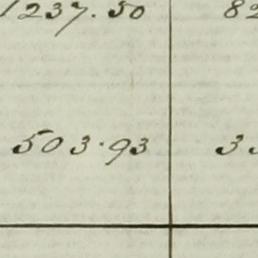 1237.50 82
503.93 33